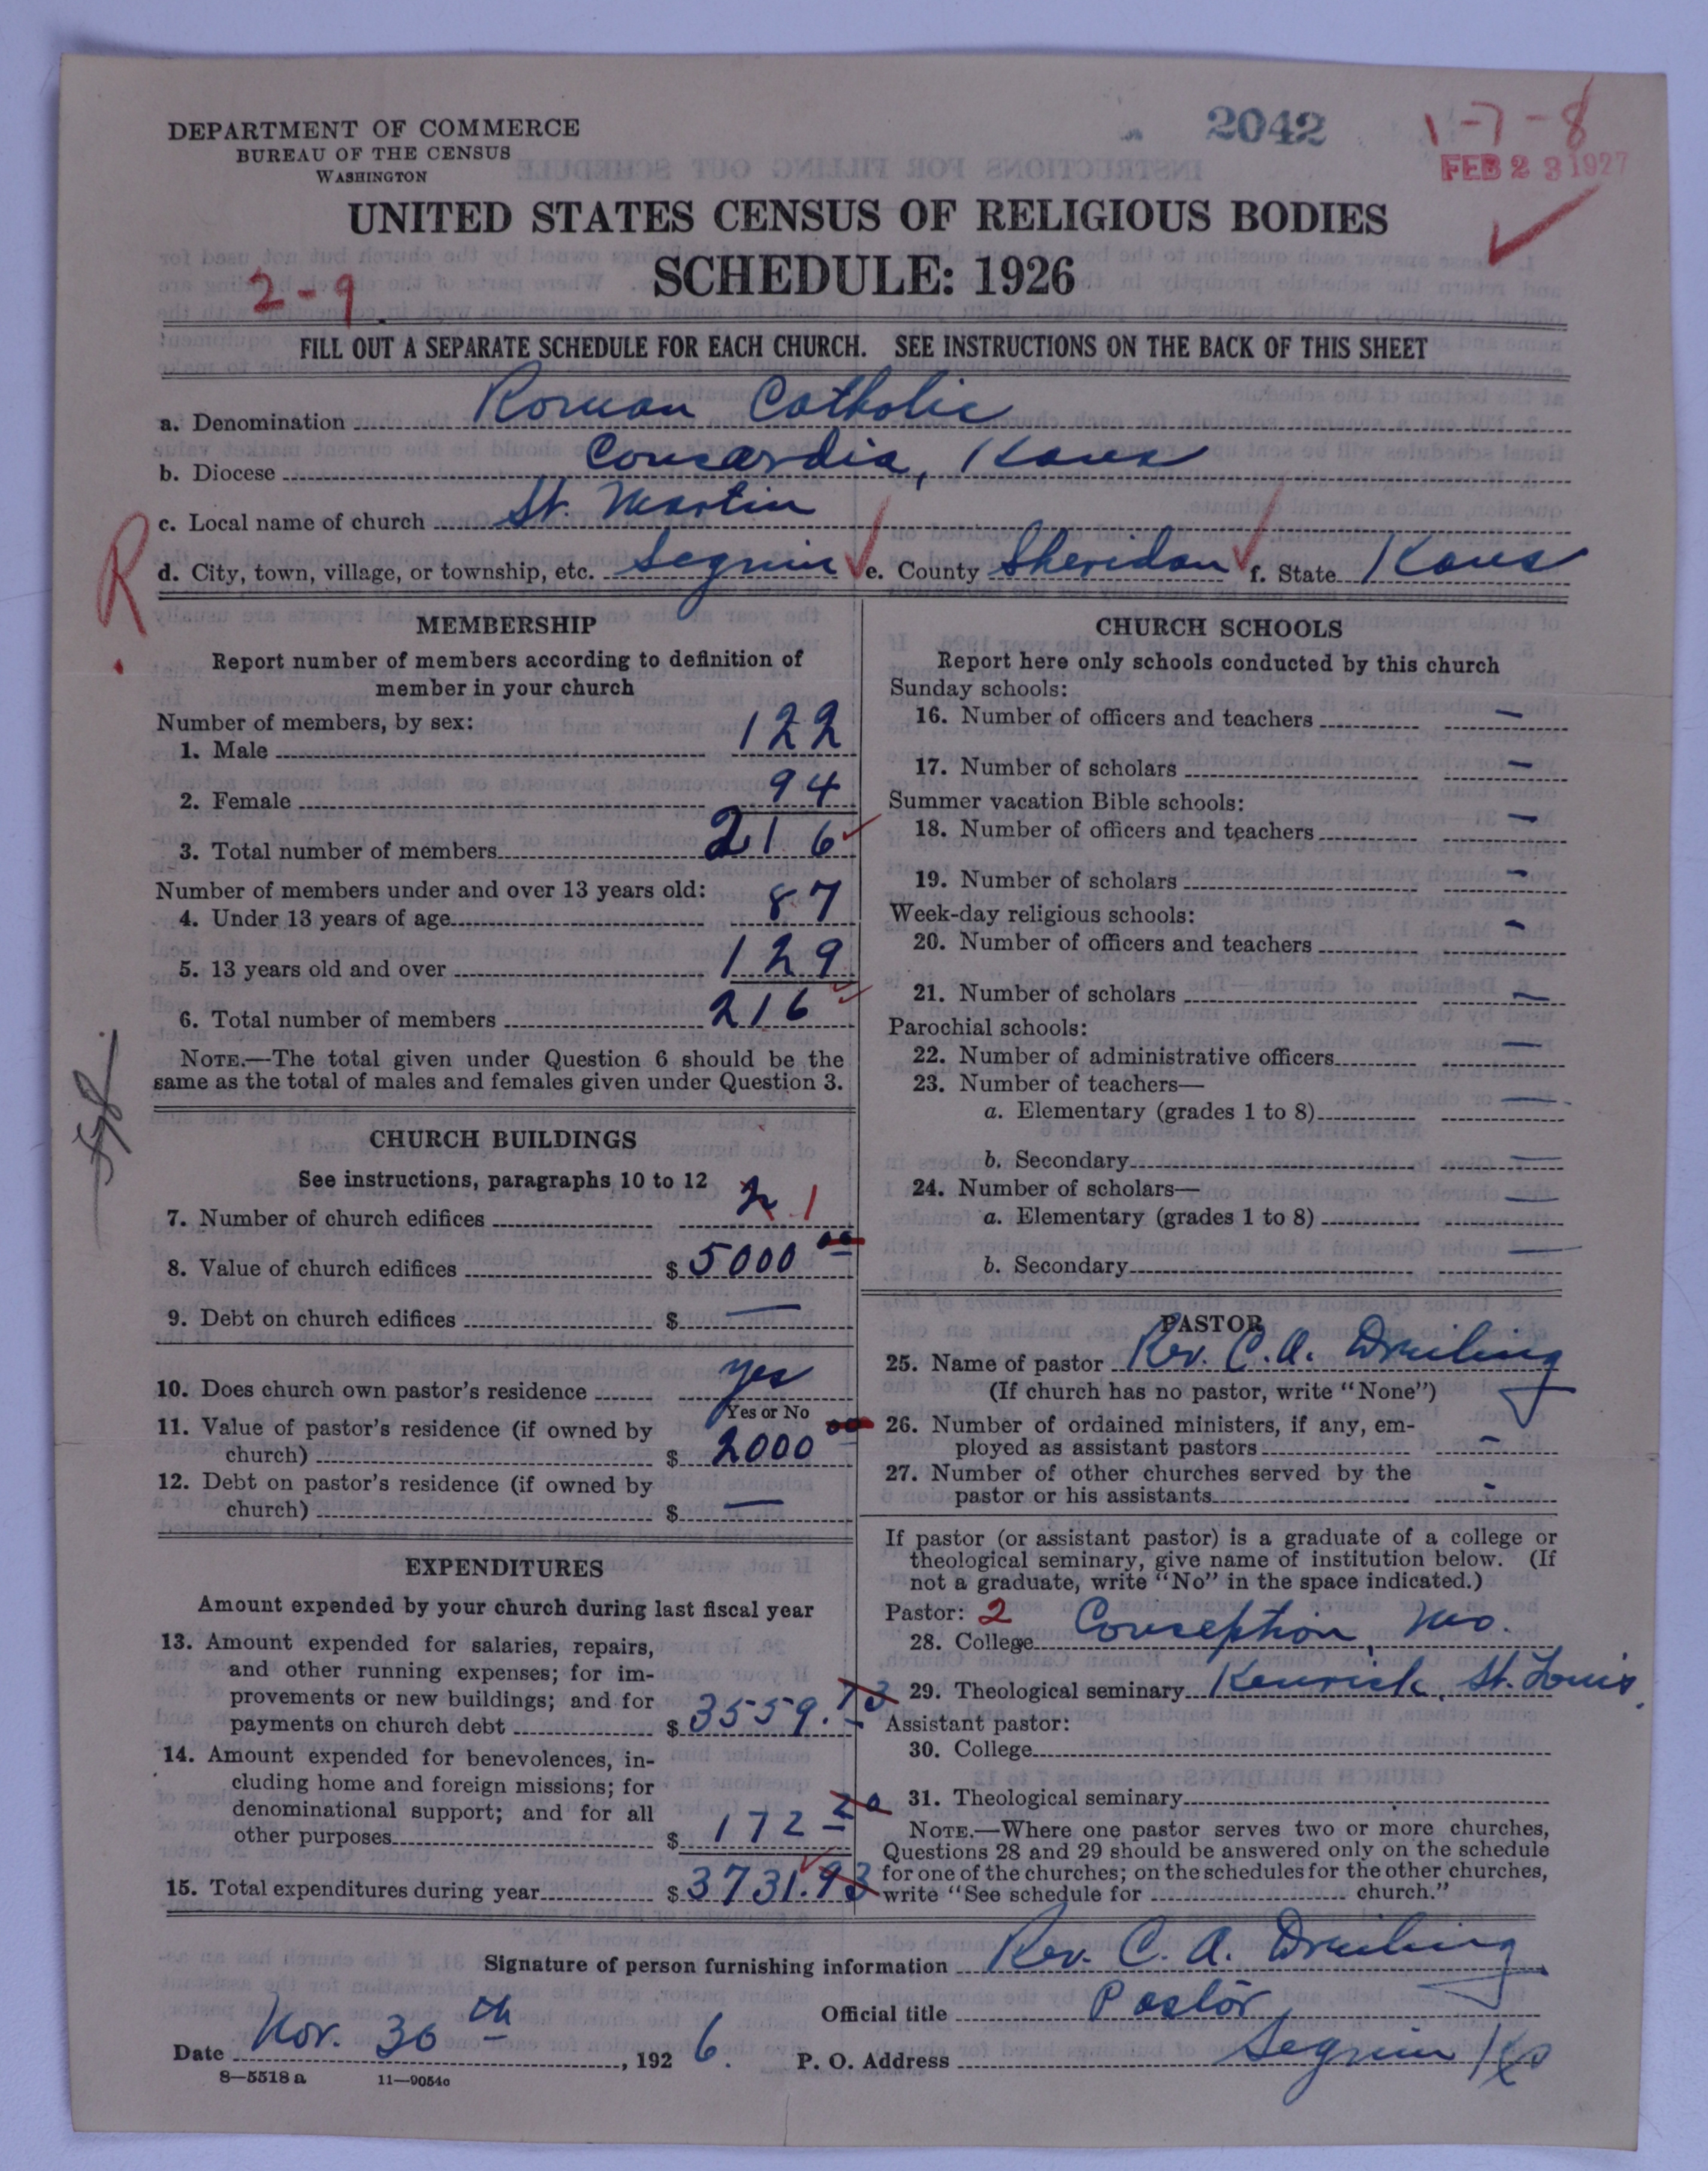 DEPARTMENT OF COMMERCE
BUREAU OF THE CENSUS
WASHINGTON
2042
1-7-8
FEB 23 1927
UNITED STATES CENSUS OF RELIGIOUS BODIES
SCHEDULE: 1926
2-9
FILL OUT A SEPARATE SCHEDULE FOR EACH CHURCH. SEE INSTRUCTIONS ON THE BACK OF THIS SHEET
a. Denomination Roman Catholic
b. Diocese Concordia, Kans
c. Local name of church St. Martin
R
d. City, town, village, or township, etc. Seguin e. County Sheridan f. State Kans
MEMBERSHIP
Report number of members according to definition of
member in your church
Number of members, by sex:
1. Male 122
2. Female 94
3. Total number of members 216
Number of members under and over 13 years old:
4. Under 13 years of age 87
5. 13 years old and over 129
6. Total number of members 216
NOTE.—The total given under Question 6 should be the
same as the total of males and females given under Question 3.
CHURCH BUILDINGS
See instructions, paragraphs 10 to 12
7. Number of church edifices 2 1
8. Value of church edifices $ 5000 00
9. Debt on church edifices $ —
10. Does church own pastor's residence yes
Yes or No
11. Value of pastor's residence (if owned by
church) $ 2000 00
12. Debt on pastor's residence (if owned by
church) $ —
EXPENDITURES
Amount expended by your church during last fiscal year
13. Amount expended for salaries, repairs,
and other running expenses; for im-
provements or new buildings; and for
payments on church debt $ 3559.73
14. Amount expended for benevolences, in-
cluding home and foreign missions; for
denominational support; and for all
other purposes $ 172 20
15. Total expenditures during year $ 3731.93
CHURCH SCHOOLS
Report here only schools conducted by this church
Sunday schools:
16. Number of officers and teachers —
17. Number of scholars —
Summer vacation Bible schools:
18. Number of officers and teachers —
19. Number of scholars —
Week-day religious schools:
20. Number of officers and teachers —
21. Number of scholars —
Parochial schools:
22. Number of administrative officers —
23. Number of teachers—
a. Elementary (grades 1 to 8) —
b. Secondary —
24. Number of scholars— —
a. Elementary (grades 1 to 8)
b. Secondary —
PASTOR
25. Name of pastor Rev. C.A. Dreiling
(If church has no pastor, write "None")
26. Number of ordained ministers, if any, em-
ployed as assistant pastors -
27. Number of other churches served by the
pastor or his assistants -
If pastor (or assistant pastor) is a graduate of a college or
theological seminary, give name of institution below. (If
not a graduate, write "No" in the space indicated.)
Pastor: 2
28. College Conception, Mo.
29. Theological seminary Kenrick, St. Louis.
Assistant pastor:
30. College
31. Theological seminary
NOTE.—Where one pastor serves two or more churches,
Questions 28 and 29 should be answered only on the schedule
for one of the churches; on the schedules for the other churches,
write "See schedule for church."
Signature of person furnishing information Rev. C. A. Dreiling
Official title Pastor
Date Nov. 30th, 1926. P. O. Address Seguin Ks
8—5518 a 11—9054c